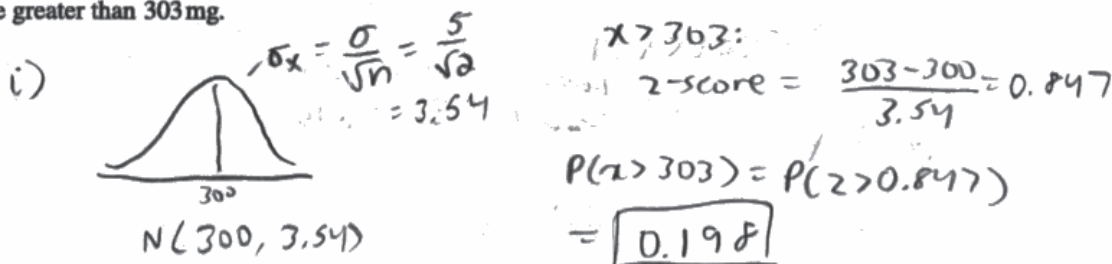 e greater than 303 mg.
i)
σx = σ/√n = 5/√2
= 3.54
300
N(300, 3.54)
x > 303:
z-score = (303-300)/3.54 = 0.847
P(x > 303) = P(z > 0.847)
= 0.198